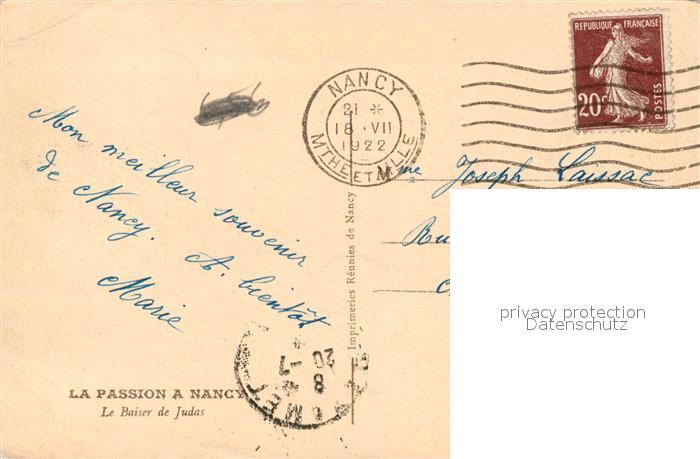 NANCY
21 *
18 - VII
1922
MTHE ET MLLE
REPUBLIQUE FRANÇAISE
20c
POSTES
Mon meilleur souvenir
de Nancy. A. bientôt
Marie
Mme Joseph Laissac
Ru
privacy protection
Datenschutz
Imprimeries Réunies de Nancy
20 -7
8
LA PASSION A NANCY
Le Baiser de Judas